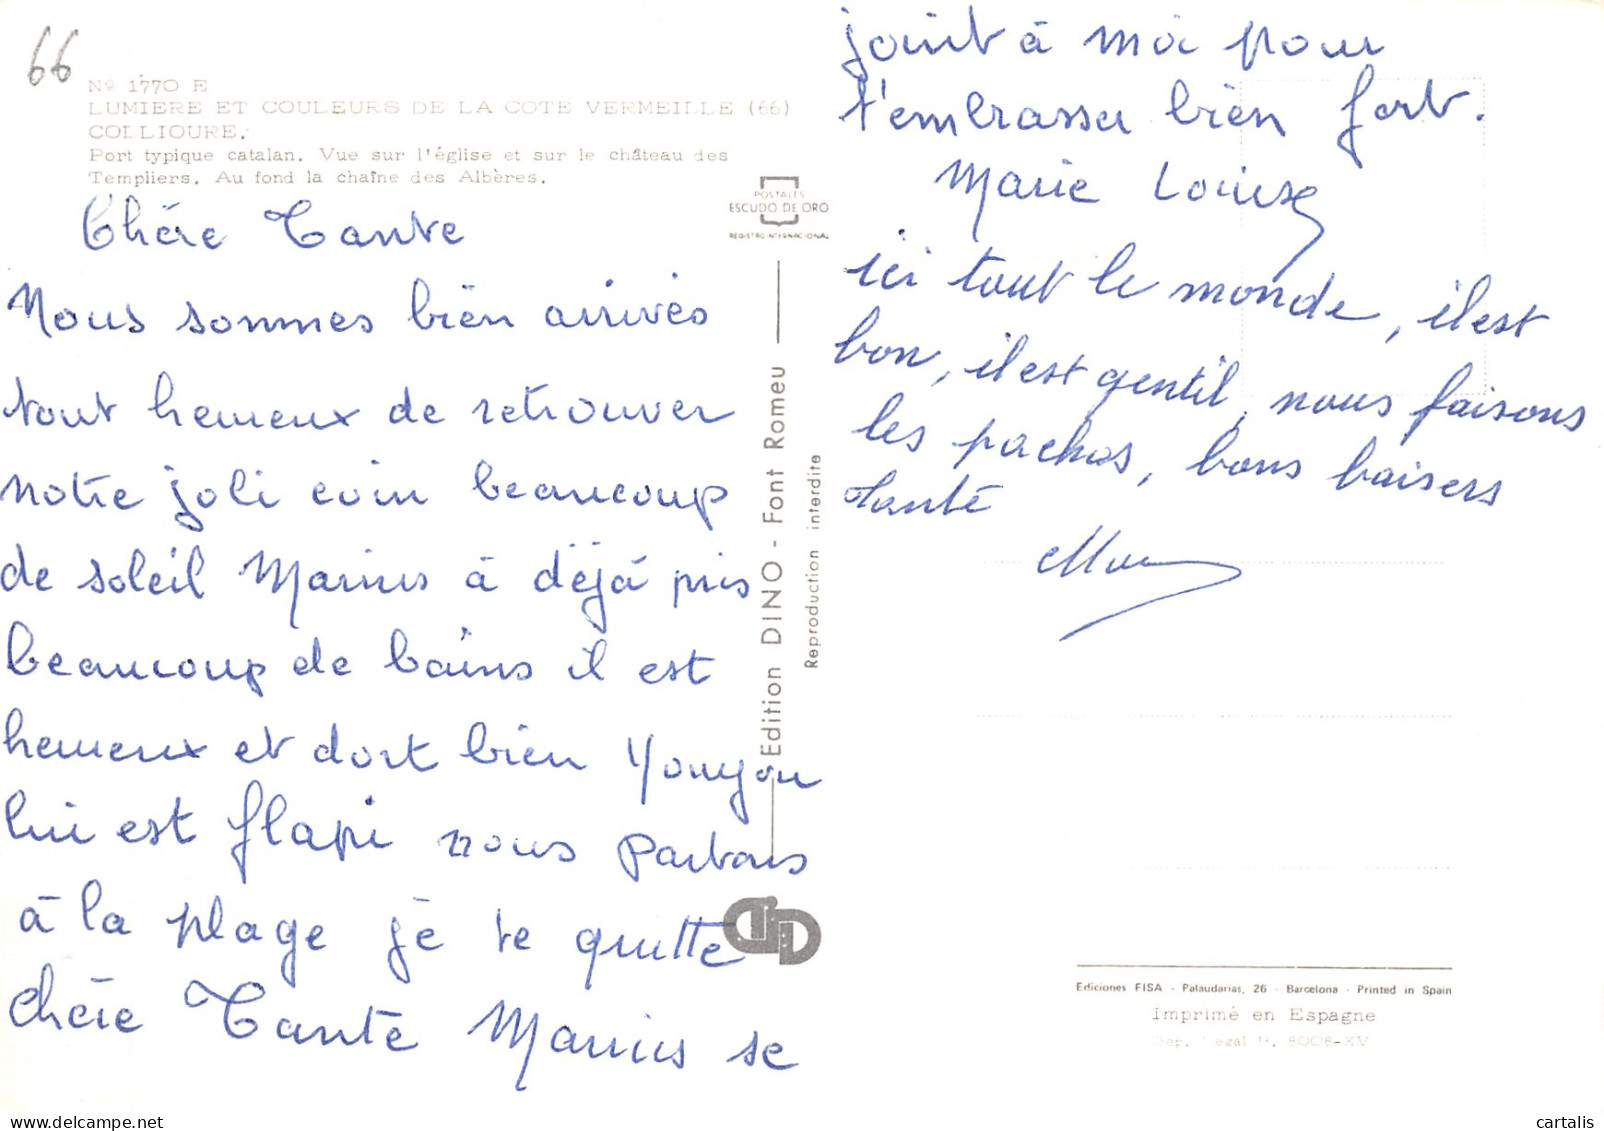 66
Nº 1770 E
LUMIERE ET COULEURS DE LA COTE VERMEILLE (66)
COLLIOURE.
Port typique catalan. Vue sur l'église et sur le château des
Templiers. Au fond la chaîne des Albères.
Chére Tante
Nous sommes bien arrivés
tout heureux de retrouver
notre joli coin beaucoup
de soleil Marius à déjà pris
beaucoup de bains il est
heureux et dort bien Youyou
lui est flapi nous partons
à la plage je te quitte
chère Tante Marius se
POSTALES
ESCUDO DE ORO
REGISTRO INTERNACIONAL
Edition DINO - Font Romeu
Reproduction interdite
joint à moi pour
t'embrasser bien fort.
Marie Louise
ici tout le monde, il est
bon, il est gentil, nous faisons
les pachas, bons baisers
tante
Ediciones FISA - Palaudarias, 26 - Barcelona - Printed in Spain
Imprimé en Espagne
Dep. Legal B. 8008-XV
cartalis www.delcampe.net